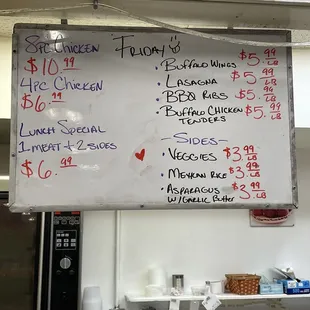 8pc Chicken
$10.99
4pc Chicken
$6.99
Lunch Special
1 meat + 2 sides
$6.99
Friday
• Buffalo Wings $5.99 LB
• Lasagna $5.99
• BBQ Ribs $5.99 LB
• Buffalo Chicken Tenders $5.99 LB
-Sides-
• Veggies $3.99 LB
• Mexican Rice $3.99 LB
• Asparagus $3.99 LB
w/ Garlic Butter